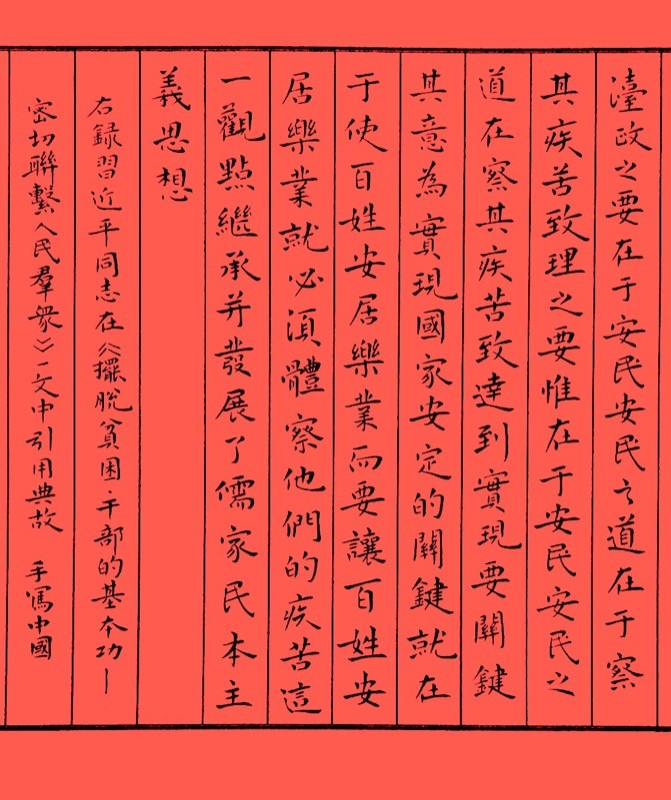 薹政之要在于安民安民之道在于察
其疾苦致理之要惟在于安民安民之
道在察其疾苦致達到實現要關鍵
其意為實現國家安定的關鍵就在
于使百姓安居樂業而要讓百姓安
居樂業就必須體察他們的疾苦這
一觀點繼承并發展了儒家民本主
義思想
右録習近平同志在《擺脫貧困·干部的基本功—
密切聯繫人民羣衆》一文中引用典故 手寫中國